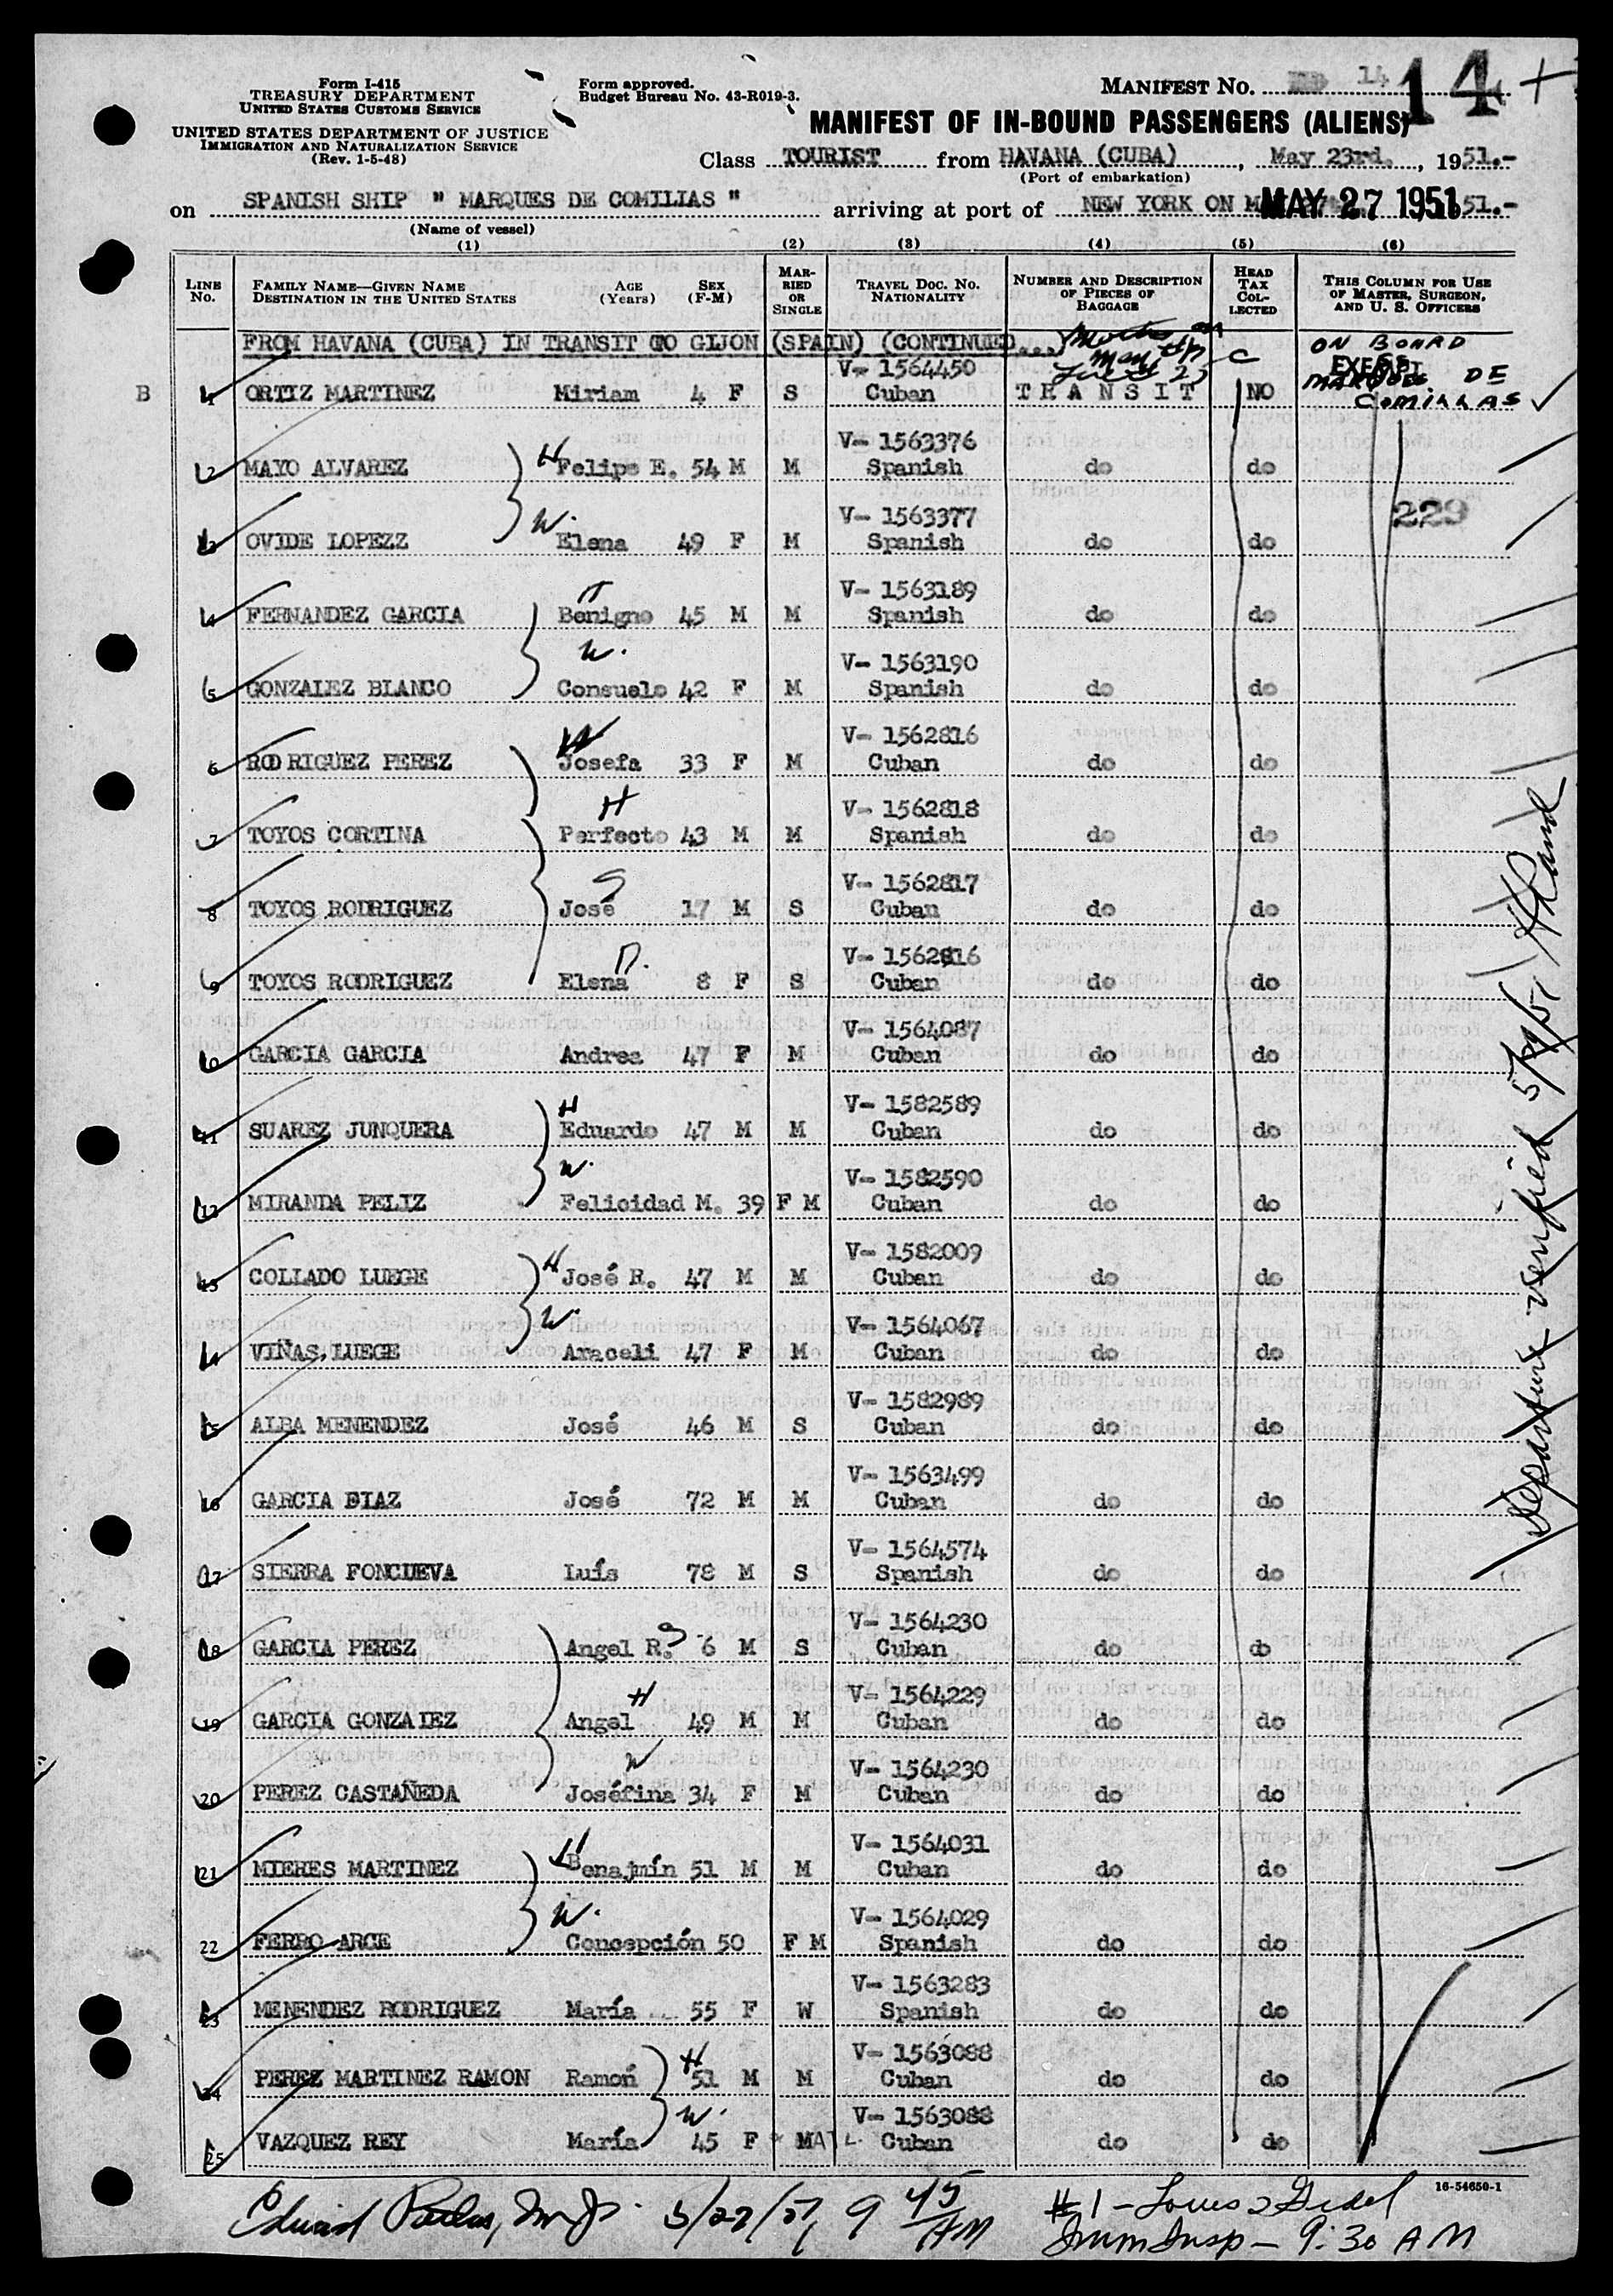 Form I-415
TREASURY DEPARTMENT
UNITED STATES CUSTOMS SERVICE
UNITED STATES DEPARTMENT OF JUSTICE
IMMIGRATION AND NATURALIZATION SERVICE
(Rev. 1-5-48)
Form approved.
Budget Bureau No. 43-R019-3.
MANIFEST NO. 14 14 +
MANIFEST OF IN-BOUND PASSENGERS (ALIENS)
Class TOURIST from HAVANA (CUBA), May 23rd., 1951.-
(Port of embarkation)
on SPANISH SHIP " MARQUES DE COMILIAS " arriving at port of NEW YORK ON MAY 27 1951 51.-
(Name of vessel)
(1) (2) (3) (4) (5) (6)
LINE NO. FAMILY NAME—GIVEN NAME DESTINATION IN THE UNITED STATES AGE (Years) SEX (F-M) MARRIED OR SINGLE TRAVEL DOC. NO. NATIONALITY NUMBER AND DESCRIPTION OF PIECES OF BAGGAGE HEAD TAX COLLECTED THIS COLUMN FOR USE OF MASTER, SURGEON, AND U. S. OFFICERS
FROM HAVANA (CUBA) IN TRANSIT TO GIJON (SPAIN) (CONTINUED...) ON BOARD
V- 1564450 C EXEMPT SS
B 1 ORTIZ MARTINEZ Miriam 4 F S Cuban TRANSIT NO MARQUES DE COMILLAS
V- 1563376
2 MAYO ALVAREZ H Felipe E. 54 M M Spanish do do
V- 1563377 229
3 OVIDE LOPEZZ W. Elena 49 F M Spanish do do
V- 1563189
4 FERNANDEZ GARCIA H Benigno 45 M M Spanish do do
V- 1563190
5 GONZALEZ BLANCO W. Consuelo 42 F M Spanish do do
V- 1562816
6 RODRIGUEZ PEREZ W Josefa 33 F M Cuban do do
V- 1562818
7 TOYOS CORTINA H Perfecto 43 M M Spanish do do
V- 1562817
8 TOYOS RODRIGUEZ S José 17 M S Cuban do do
V- 1562816
9 TOYOS RODRIGUEZ D. Elena 8 F S Cuban do do
V- 1564087
10 GARCIA GARCIA Andrea 47 F M Cuban do do
V- 1582589
11 SUAREZ JUNQUERA H Eduardo 47 M M Cuban do do
V- 1582590
12 MIRANDA PELIZ W. Felicidad M. 39 F M Cuban do do
V- 1582009
13 COLLADO LUEGE H José R. 47 M M Cuban do do
V- 1564067
14 VIÑAS LUEGE W. Araceli 47 F M Cuban do do
V- 1582989
15 ALBA MENENDEZ José 46 M S Cuban do do
V- 1563499
16 GARCIA DIAZ José 72 M M Cuban do do
V- 1564574
17 SIERRA FONCUEVA Luís 78 M S Spanish do do
V- 1564230
18 GARCIA PEREZ Angel R. S 6 M S Cuban do do
V- 1564229
19 GARCIA GONZALEZ H Angel 49 M M Cuban do do
V- 1564230
20 PEREZ CASTAÑEDA W Joséfina 34 F M Cuban do do
V- 1564031
21 MIERES MARTINEZ H Benajmín 51 M M Cuban do do
V- 1564029
22 FERRO ARCE W. Concepción 50 F M Spanish do do
V- 1563283
23 MENENDEZ RODRIGUEZ María 55 F W Spanish do do
V- 1563088
24 PEREZ MARTINEZ RAMON Ramon H 51 M M Cuban do do
V- 1563088
25 VAZQUEZ REY María W. 45 F M Cuban do do
Departure verified
16-54650-1
9 45 AM #1 - Louis
Imm Insp - 9:30 AM